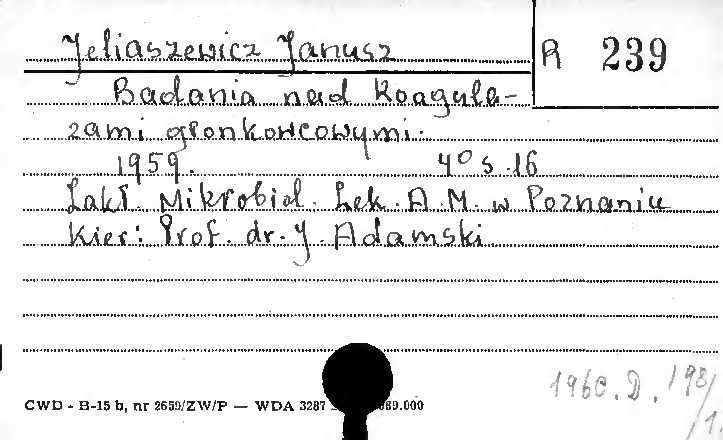 Jeliaszewicz Janusz
R 239
Badania nad Koagula-
zami gronkowcowymi.
1959. 4° s. 16
Zakł. Mikrobiol. Lek. A. M. w Poznaniu
Kier: Prof. dr. J. Adamski
1960. D. 198/
/1.
CWD - B-15 b, nr 2659/ZW/P — WDA 3287 89.000